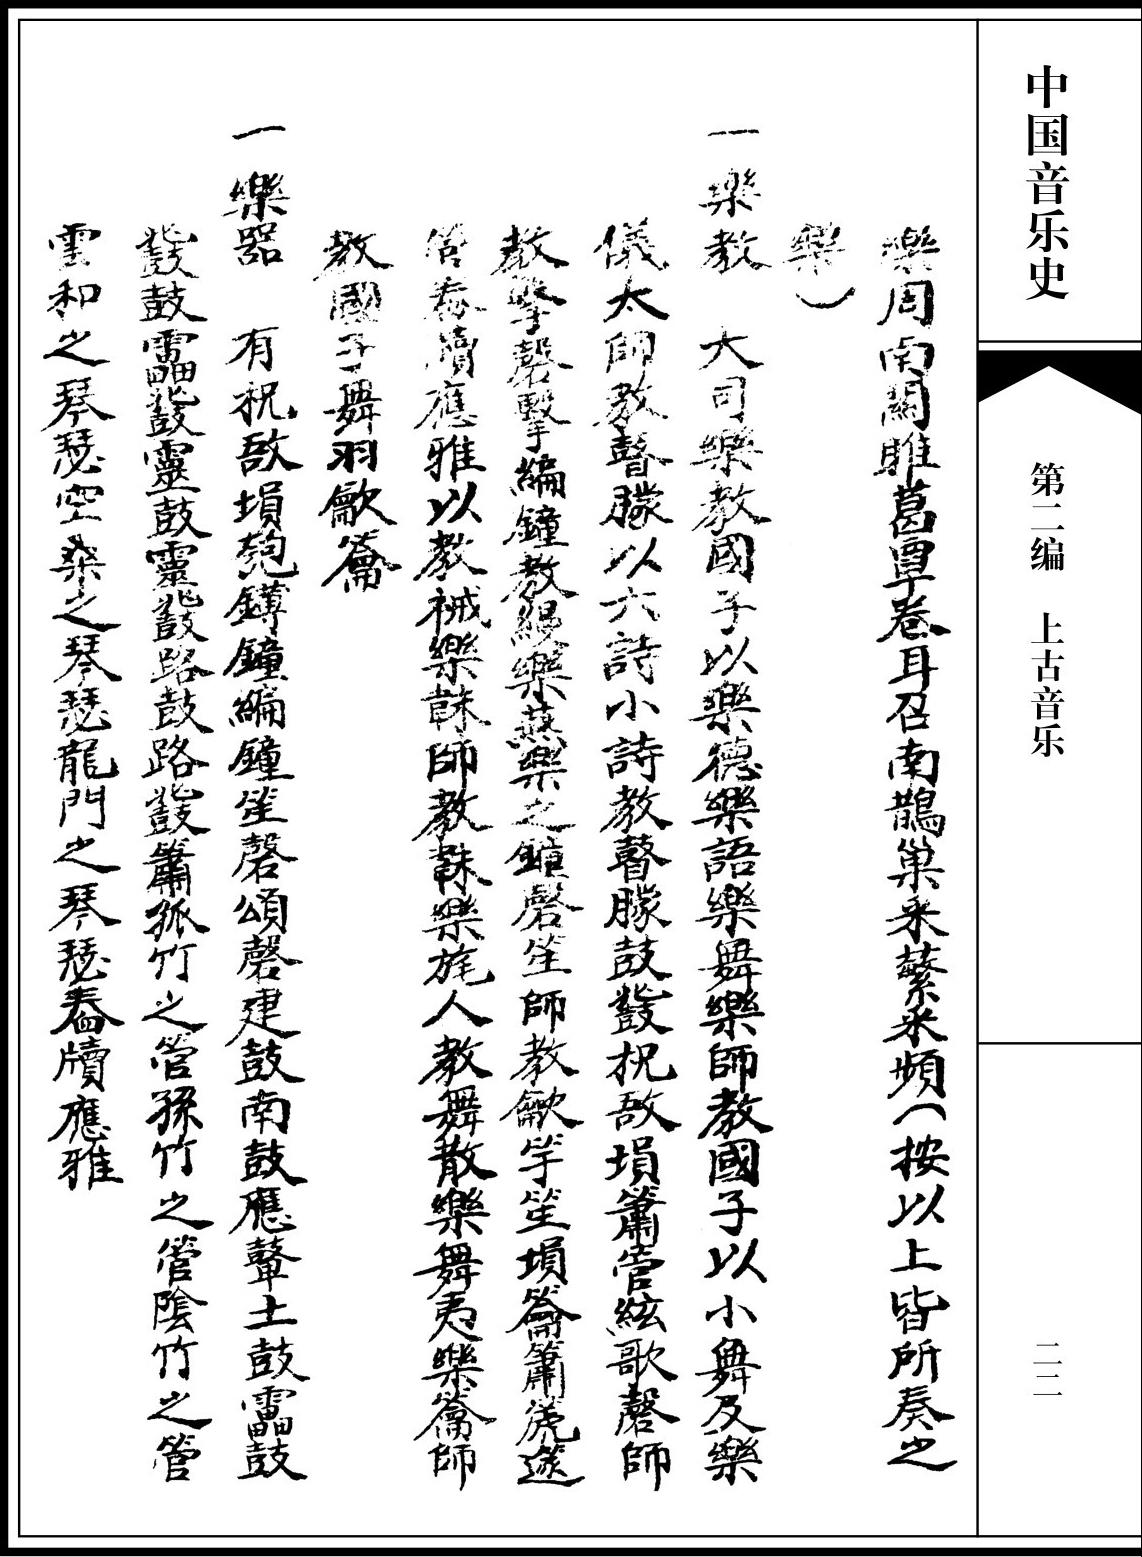 中国音乐史
第二编 上古音乐
二二
樂周南關雎葛覃卷耳召南鵲巢采蘩采蘋(按以上皆所奏之
樂)
一樂教 大司樂教國子以樂德樂語樂舞樂師教國子以小舞及樂
儀太師教瞽矇以六詩小詩教瞽矇鼓鼗柷敔塤簫管絃歌磬師
教擊磬擊編鐘教縵樂燕樂之鐘磬笙師教龡竽笙塤籥簫篪篴
管舂牘應雅以教祴樂韎師教韎樂旄人教舞散樂舞夷樂籥師
教國子舞羽龡籥
一樂器 有柷敔塤匏鎛鐘編鐘笙磬頌磬建鼓南鼓應鼙土鼓靁鼓
鼗鼓靁鼗靈鼓靈鼗路鼓路鼗簫孤竹之管孫竹之管陰竹之管
雲和之琴瑟空桑之琴瑟龍門之琴瑟舂牘應雅